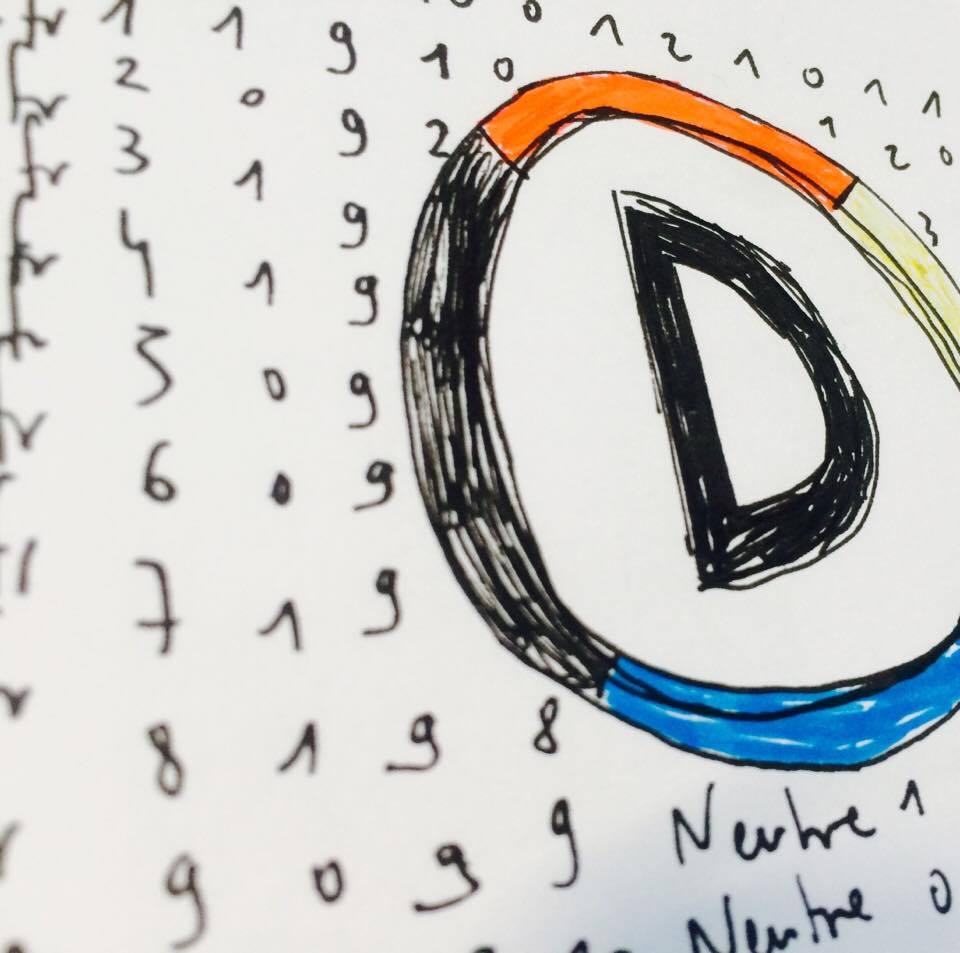 0 1 2 1 0 1 1
1 1 9 1 0
1 2 0
2 0 9 2
3 1 9
3
4 1 9
D
5 0 9
6 0 9
7 1 9
8 1 9 8
9 0 9 9 Neutre 1
Neutre 0